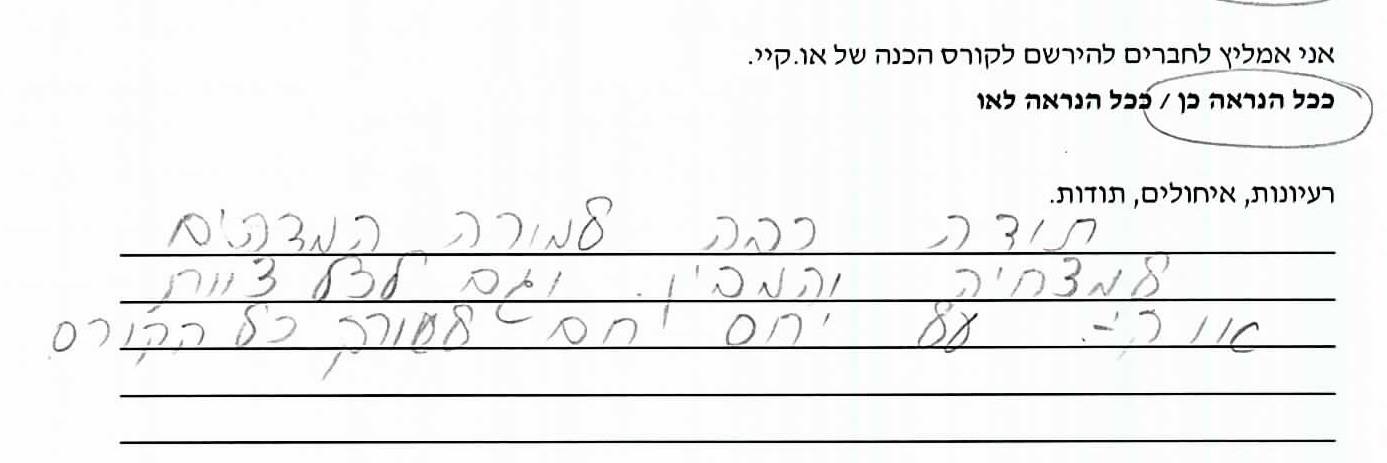 אני אמליץ לחברים להירשם לקורס הכנה של או.קיי.
ככל הנראה כן / ככל הנראה לאו
רעיונות, איחולים, תודות.
תודה רבה למורה המדהים
למצחיק והמבין. וגם לכל צוות
או קיי על יחס חם לאורך כל הקורס